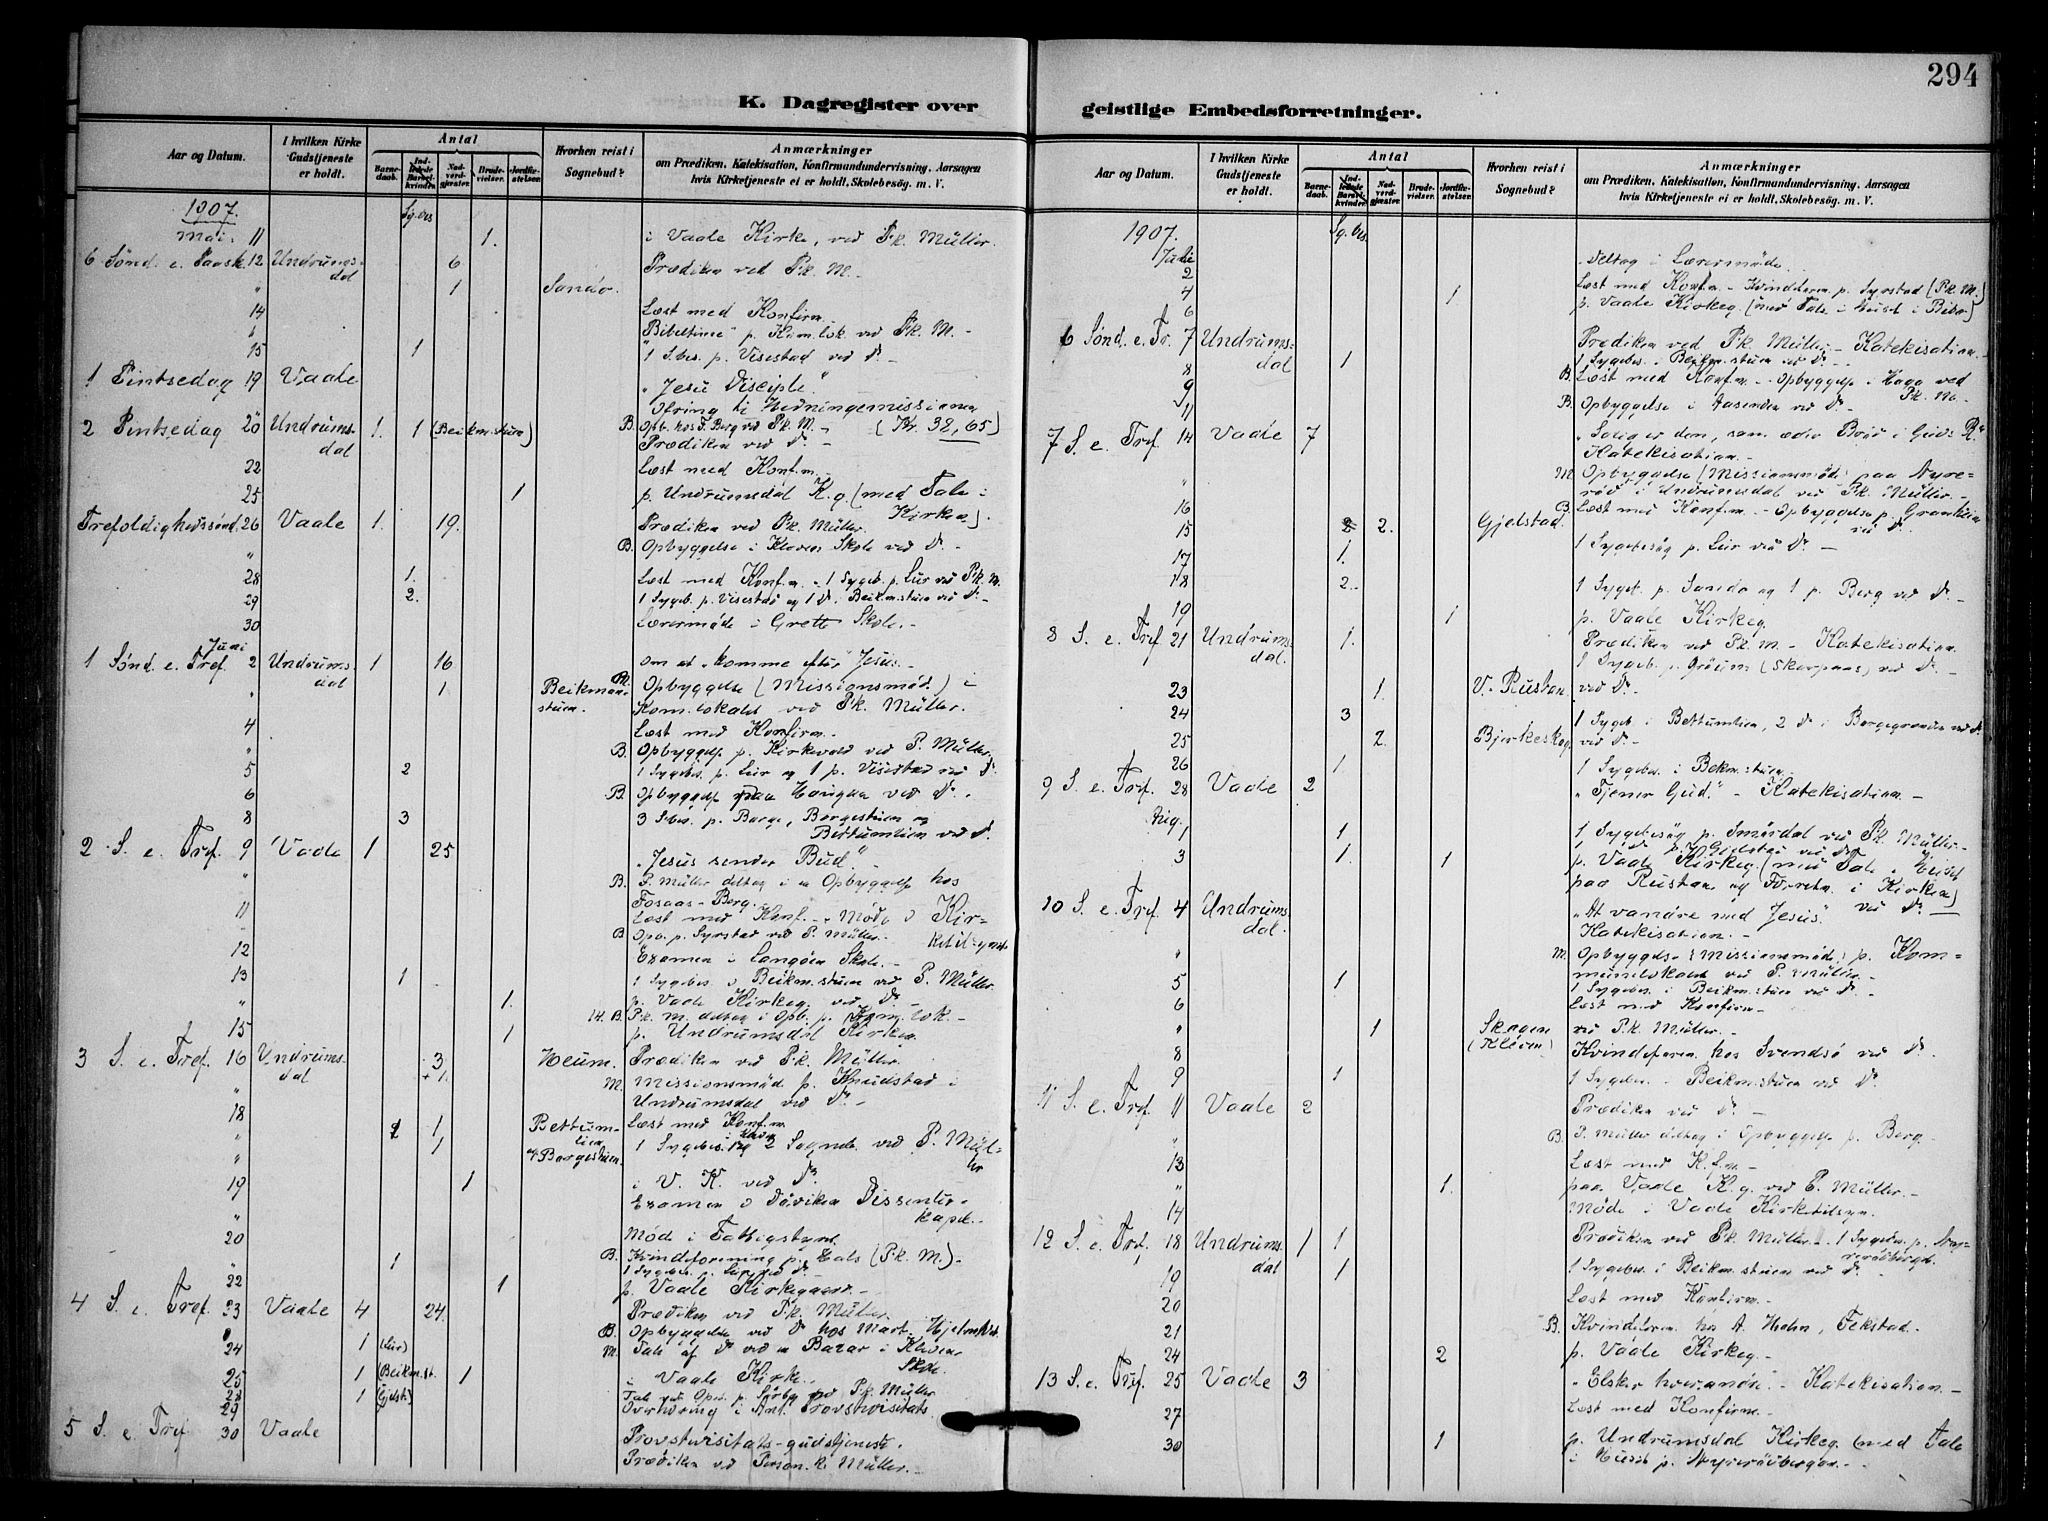 294
K. Dagregister over
Aar og Datum.
I hvilken Kirke Gudstjeneste er holdt.
Antal
Barne-daab.
Ind-ledede Barsel-kvinder.
Nad-verd-gjæster.
Brude-vielser.
Jordfæ-stelser.
Hvorhen reist i Sognebud?
Anmærkninger
om Prædiken, Katekisation, Konfirmandundervisning, Aarsagen
hvis Kirketjeneste ei er holdt, Skolebesøg. m. V.
1907. Sg.bes
Mai. 11 1. i Vaale Kirke, ved P.k. Müller.
6 Sønd. e. Paask. 12 Undrums-dal 6 Prædiken ved P.k. M.
" 1 Sandø.
14 Læst med Konfirm.
" "Bibeltime" p. Kom.lok. ved P.k. M. -
15 1 1 S.bes. p. Visestad ved Do -
1 Pintsedag 19 Vaale "Jesu Disciple"
Ofring til Hedningemissionen
2 Pintsedag 20 Undrums-dal 1. 1 (Beikm.stuen) B. Opb. hos J. Berg ved P.k. M. - (Kr. 32,65)
Prædiken ved Do -
22 Læst med Konf.m. -
25 1 p. Undrumsdal K.g. (med Tale i Kirken).
Trefoldighedssønd. 26 Vaale 1. 19. Prædiken ved P.k. Müller.
" B. Opbyggelse i Kleven Skole ved Do -
28 1. Læst med Konf.m. - 1 Sygeb. p. Lur ved P.k. M.
29 2. 1 Sygeb. p. Visestad og 1 Do i Beikm.stuen ved Do -
30 Lærermøde i Grette Skole. -
Juni
1 Sønd. e. Tref. 2 Undrums-dal 1 16 Om at "komme efter" Jesus. -
" 1. Beikman-stuen. M. Opbyggelse (Missionsmød.) i
Kom.lokalet ved P.k. Müller.
4 Læst med Konfirm. -
" B. Opbyggels. p. Kirkevold ved P. Müller.
5 2 1 Sygebes. p. Leir og 1 p. Visestad ved Do
6 B. Opbyggels. paa Haugen ved Do.
8 3 3 S.bes. p. Barge, Borgestuen og
Bettumlien ved Do.
2 S. e. Tref. 9 Vaale 1 25 "Jesus sender Bud".
" B. P. Müller deltog i en Opbyggels. hos
Fosaas-Berg.
11 Læst med Konf. - Møde i Kir-ketilsynet
" B. Opb. p. Syrstad ved P. Müller. -
12 Examen i Langøen Skole. -
13 1 1 Sygebes. i Beikm.stuen ved P. Müller.
" 1. p. Vaale Kirkeg. ved Do -
14. B. P.k. M. deltog i Opb. p. Kom.lok. -
15 1 p. Undrumsdal Kirkeg.
3 S. e. Tref. 16 Undrums-dal 3 +1. Heum. Prædiken ved P.k. Müller.
" M. Missionsmød. p. Knudstad i
Undrumsdal ved Do. -
18 1 Bettum-lien Læst med Konf.m.
" 1 og Borgestuen. 1 Sygebes. og 2 Sogneb. ved P. Mül-ler
" 1 i V. K. ved Do.
19 Examen i Døviken Dissenter-kapel. -
"
20 Møde i Fattigstyret.
B. Kvindeforening p. Hals (P.k. M.). -
" 1 1 Sygebes. i Lur ved Do. -
22 1 p. Vaale Kirkegaard.
4 S. e. Tref. 23 Vaale 4 24. Prædiken ved P.k. Müller.
" B. Opbyggelse ved Do hos Mart. Hjelmtvet.
24 1 (Lur) M. Tale af Do ved en Bazar i Kleven Skole
25 1 (Beikm.st. 1 i Vaale Kirke.
28 1 (Gjelst.)
29 Overhøring i Anl. Provstvisitats.
5 S. e. Tref. 30 Vaale Provstvisitats-gudstjeneste.
Prædiken ved Person.k. Müller. -
geistlige Embedsforretninger.
Aar og Datum.
I hvilken Kirke Gudstjeneste er holdt.
Antal
Barne-daab.
Ind-ledede Barsel-kvinder.
Nad-verd-gjæster.
Brude-vielser.
Jordfæ-stelser.
Hvorhen reist i Sognebud?
Anmærkninger
om Prædiken, Katekisation, Konfirmandundervisning, Aarsagen
hvis Kirketjeneste ei er holdt, Skolebesøg. m. V.
1907. Sg.bes.
Juli 2 Deltog i Lærermøde.
4 Læst med Konf.m. - Kvindeforen. p. Syrstad (P.k. M.)
6 1 p. Vaale Kirkeg. (med Tale i Huset i Bibo)
6 Sønd. e. Tr. 7 Undrums-dal 1 Prædiken ved P.k. Müller. - Katekisation. -
1 Sygebes. i Beikm.stuen ved Do. -
8 B. Læst med Konf.m. - Opbyggels. i Haga ved P.k. M.
9 B. Opbyggelse i Aasenden ved Do -
11
7 S. e. Tref. 14 Vaale 7 "Salig er den, som æder Brød i Guds R."
Katekisation. -
" M. Opbyggelse (Missionsmød.) paa Nyre-rød i Undrumsdal ved P.k. Müller. -
16 B. Læst med Konf.m. - Opbyggels. p. Granheim
15 2 2. Gjelstad. ved Do.
17 1. 1 Sygebesøg p. Leir ved Do -
18 2. 1 Sygeb. p. Sandø og 1 p. Berg ved Do -
19 1 p. Vaale Kirkeg.
8 S. e. Tref. 21 Undrums-dal. 1. Prædiken ved P.k. M. - Katekisation.
1 Sygeb. p. Grøum (Skorpaas) ved Do -
23 1. V. Rustan ved Do. -
24 3 1 Sygeb. i Bettumlien, 2 Do i Borgegranden ved Do
25 2. Bjerkeskog. ved Do. -
26 1 1 Sygebes. i Beikm.stuen.
9 S. e. Tref. 28 Vaale 2 "Tjener Gud". - Katekisation. -
Aug. 1 1 1 Sygebesøg p. Smørdal ved P.k. Müller. -
3 1. 1 1 Do p. Gjelstad ved Do
p. Vaale Kirkeg. (med Tale i Huset
paa Rustan og Forretn. i Kirken)
ved Do. -
10 S. e. Tref. 4 Undrums-dal. "At vandre med Jesus".
Katekisation. -
" M. Opbyggelse (Missionsmøde) p. Kom-munelokalet ved P. Müller. -
5 1 1 Sygebes. i Beikm.stuen ved Do. -
6 Læst med Konfirm. -
" 1 Skogen (Kleven) ved P.k. Müller. -
8 Kvindeforen. hos Svendsø ved Do.
9 1 1 Sygebes. i Beikm.stuen ved Do.
11 S. e. Tref. 11 Vaale 2 Prædiken ved Do. -
" B. P. Müller deltog i Opbyggelse p. Berg. -
13 Læst med K.f.m. -
" 1. paa Vaale K.g. ved P. Müller. -
14 Møde i Vaale Kirketilsyn.
12 S. e. Tref. 18 Undrums-dal 1 1 Prædiken ved P.k. Müller. - 1 Sygebes. p. Nyrerødberget.
19 1 1 Sygebes. i Beikm.stuen ved Do -
20 Læst med Konfirm. -
21 B. Kvindeforen. hos A. Hehn, Fekstad. -
24 2 p. Vaale Kirkeg. -
13 S. e. Tref. 25 Vaale 3 "Elsker hverandre". - Katekisation. -
27 Læst med Konfirm. -
30 1 p. Undrumsdal Kirkeg. (med Tale
i Huset p. Nyrerødbergan. -